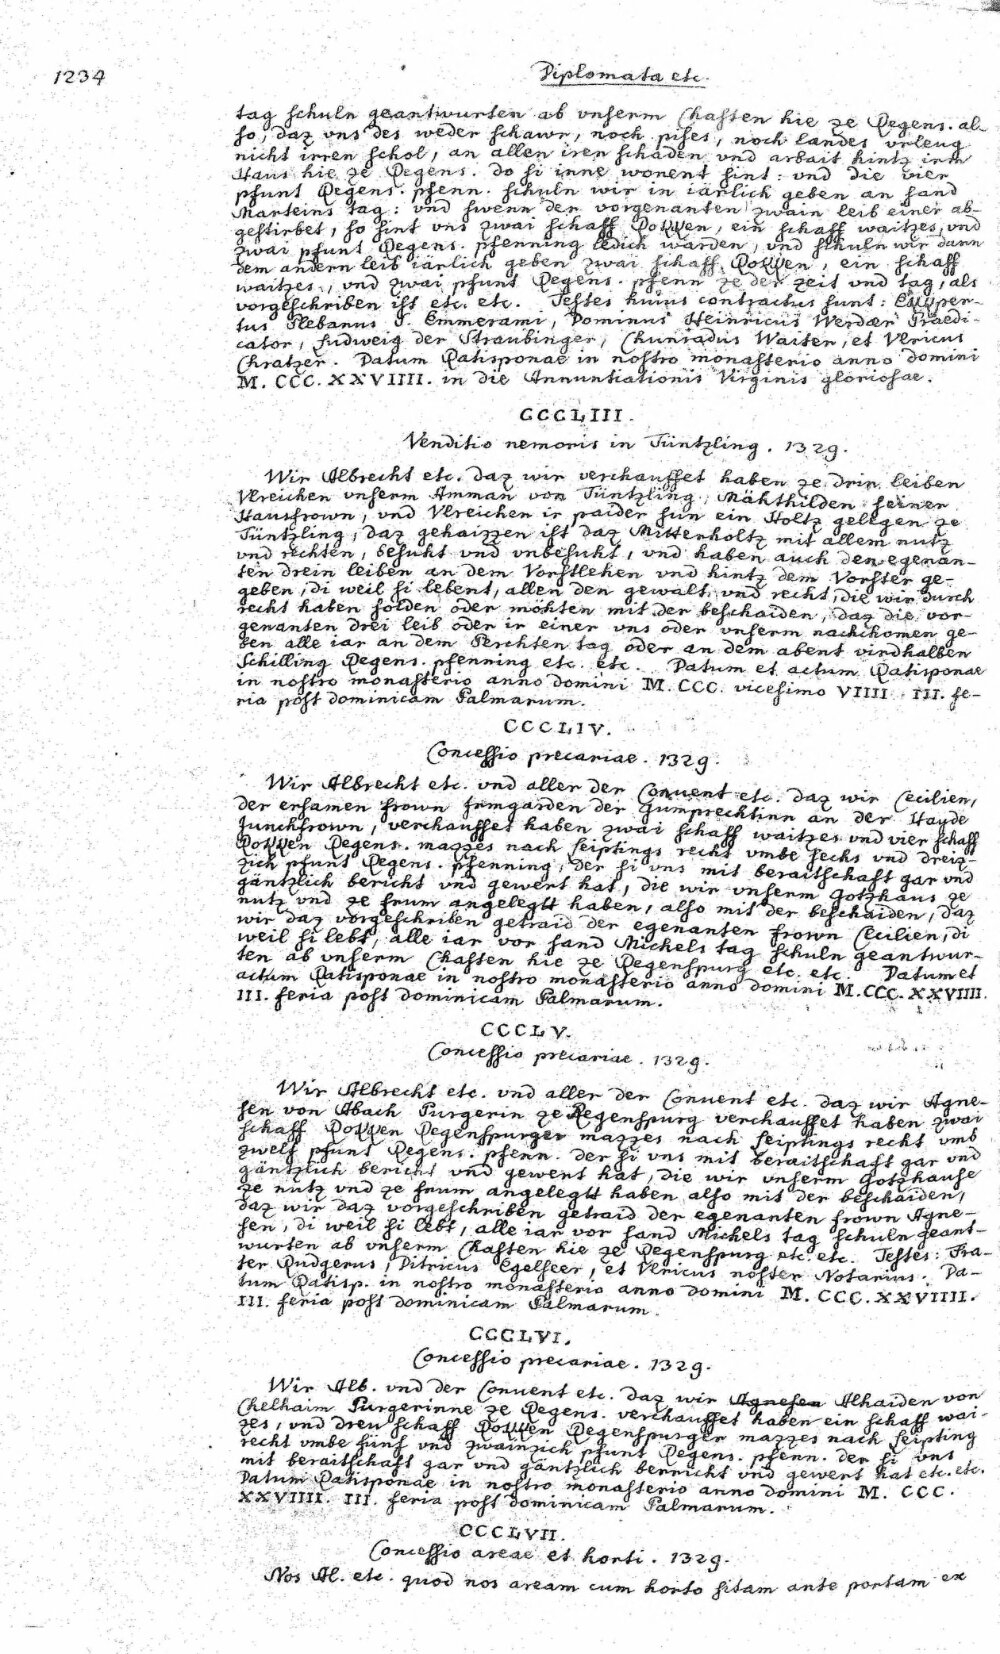 1234
Diplomata etc.
tag schuln geantwurten ab vnserm Chasten hie ze Regens. al-
so, daz vns des weder schawr, noch pises, noch landes vrleug
nicht irren schol, an allen iren schaden vnd arbait hintz irm
Haus hie ze Regens. do si inne wonent sint: vnd die vier
phunt Regens. pfenn. schuln wir in iärlich geben an sand
Marteins tag: vnd swenn der vorgenanten zwain leib einer ab-
gestirbet, so sint vns zwai schaff Rokken, ein schaff waitzes, vnd
zwai pfunt Regens. pfenning ledich warden, vnd schuln wir dann
dem andern leib iärlich geben zwai schaff Rokken, ein schaff
waitzes, vnd zwai phunt Regens. pfenn ze der zeit vnd tag, als
vorgeschriben ist etc. etc. Testes huius contractus sunt: Ekkper-
tus Plebanus S. Emmerami, Dominus Heinricus Werdær Praedi-
cator, Ludweig der Straubinger, Chunradus Waiter, et Vlricus
Chratzer. Datum Ratisponae in nostro monasterio anno domini
M. CCC. XXVIIII. in die Annuntiationis Virginis gloriosae.
CCCLIII.
Venditio nemoris in Tüntzling. 1329.
Wir Albrecht etc. daz wir verchauffet haben ze drin leiben
Vlreichen vnserm Amman von Tüntzling, Mähthilden seiner
Hausfrown, vnd Vlreichen ir paider sun ein Holtz gelegen ze
Tüntzling, daz gehaizzen ist daz Mitterholtz mit allem nutz
vnd rechten, besuht vnd vnbesuht, vnd haben auch den egenan-
ten drein leiben an dem Vorstlehen vnd hintz dem Vorster ge-
geben, di weil si lebent, allen den gewalt, vnd recht, die wir durch
recht haben solden oder möhten mit der beschaiden, daz die vor-
genanten drei leib oder ir einer vns oder vnserm nachchomen ge-
ben alle iar an dem Perchten tag oder an dem abent virdhalben
Schilling Regens. pfenning etc. etc. Datum et actum Ratisponae
in nostro monasterio anno domini M. CCC. vicesimo VIIII. III. fe-
ria post dominicam Palmarum.
CCCLIV.
Concessio precariae. 1329.
Wir Albrecht etc. vnd aller der Conuent etc. daz wir Cecilien,
der ersamen frown Irmgarden der Gumprechtinn an der Hayde
Junchfrown, verchauffet haben zwai schaff waitzes vnd vier schaff
Rokken Regens. mazzes nach leiptings recht vmbe sechs vnd dreiz-
zich phunt Regens. pfenning, der si vns mit beraitschaft gar vnd
gäntzlich bericht vnd gewert hat, die wir vnserm Gotzhaus ze
nutz vnd ze frum angelegtt haben, also mit der beschaiden, daz
wir daz vorgeschriben getraid der egenanten frown Cecilien, di
weil si lebt, alle iar vor sand Michels tag schuln geantwur-
ten ab vnserm Chasten hie ze Regenspurg etc. etc. Datum et
actum Ratisponae in nostro monasterio anno domini M. CCC. XXVIIII.
III. feria post dominicam Palmarum.
CCCLV.
Concessio precariae. 1329.
Wir Albrecht etc. vnd aller der Conuent etc. daz wir Agne-
sen von Abach Purgerin ze Regenspurg verchauffet haben zwai
schaff Rokken Regenspurger mazzes nach leiptings recht vmb
zwelf phunt Regens. pfenn. der si vns mit beraitschaft gar vnd
gäntzlich bericht vnd gewert hat, die wir vnserm Gotzhause
ze nutz vnd ze frum angelegtt haben also mit der beschaiden,
daz wir daz vorgeschriben getraid der egenanten frown Agne-
sen, di weil si lebt, alle iar vor sand Michels tag schuln geant-
wurten ab vnserm Chasten hie ze Regenspurg etc. etc. Testes: Fra-
ter Rudgerus, Ditricus Egelseer, et Vlricus noster Notarius. Da-
tum Ratisp. in nostro monasterio anno domini M. CCC. XXVIIII.
III. feria post dominicam Palmarum.
CCCLVI.
Concessio precariae. 1329.
Wir Alb. vnd der Conuent etc. daz wir Agnesen Alhaiden von
Chelhaim Purgerinne ze Regens. verchauffet haben ein schaff wai-
zes, vnd dreu schaff Rokken Regenspurger mazzes nach leipting
recht vmbe fünf vnd zwainzich phunt Regens. pfenn. der si vns
mit beraitschaft gar vnd gäntzlich berricht vnd gewert hat etc. etc.
Datum Ratisponae in nostro monasterio anno domini M. CCC.
XXVIIII. III. feria post dominicam Palmarum.
CCCLVII.
Concessio areae et horti. 1329.
Nos Al. etc. quod nos aream cum horto sitam ante portam ex